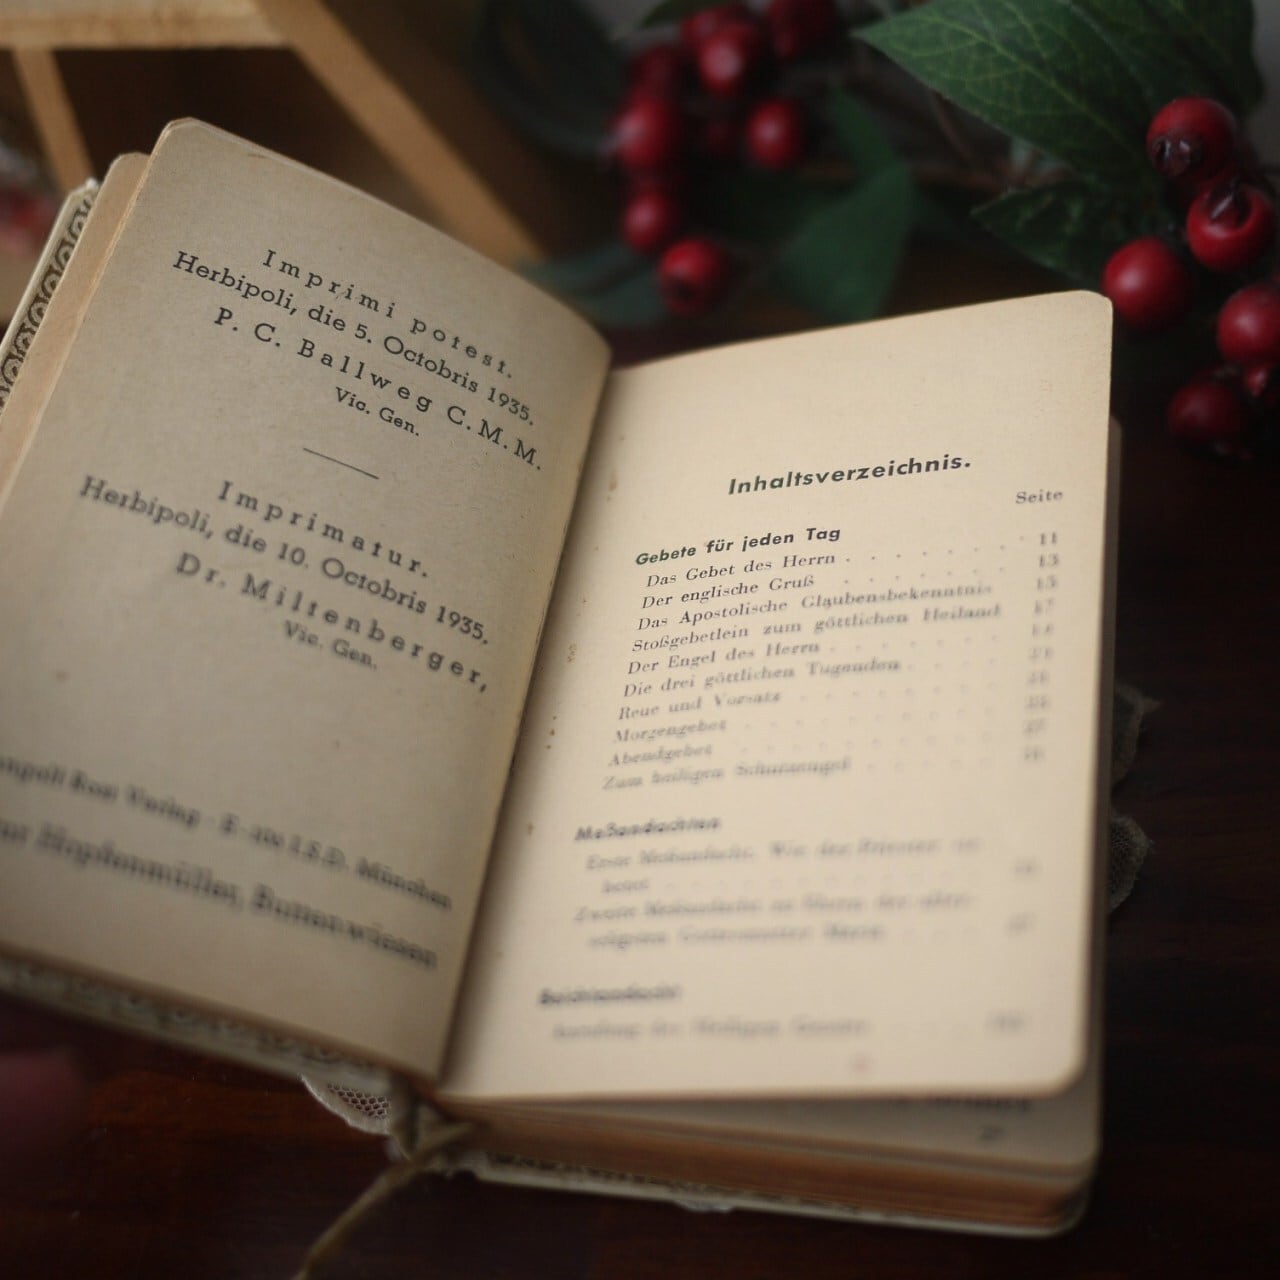 Imprimi potest.
Herbipoli, die 5. Octobris 1935.
P. C. Ballweg C. M. M.
Vic. Gen.
Imprimatur.
Herbipoli, die 10. Octobris 1935.
Dr. Miltenberger,
Vic. Gen.
Verlag München
Hopfenmüller,
Inhaltsverzeichnis.
Seite
Gebete für jeden Tag
Das Gebet des Herrn . . . . . . 11
Der englische Gruß . . . . . . 13
Das Apostolische Glaubensbekenntnis 15
Stoßgebetlein zum göttlichen Heiland 17
Der Engel des Herrn
Die drei göttlichen Tugenden
Reue und Vorsatz
Morgengebet
Abendgebet
Zum heiligen Schutzengel
Meßandachten
Erste Meßandacht. Wie der Priester
Zweite Meßandacht
Beichtandacht